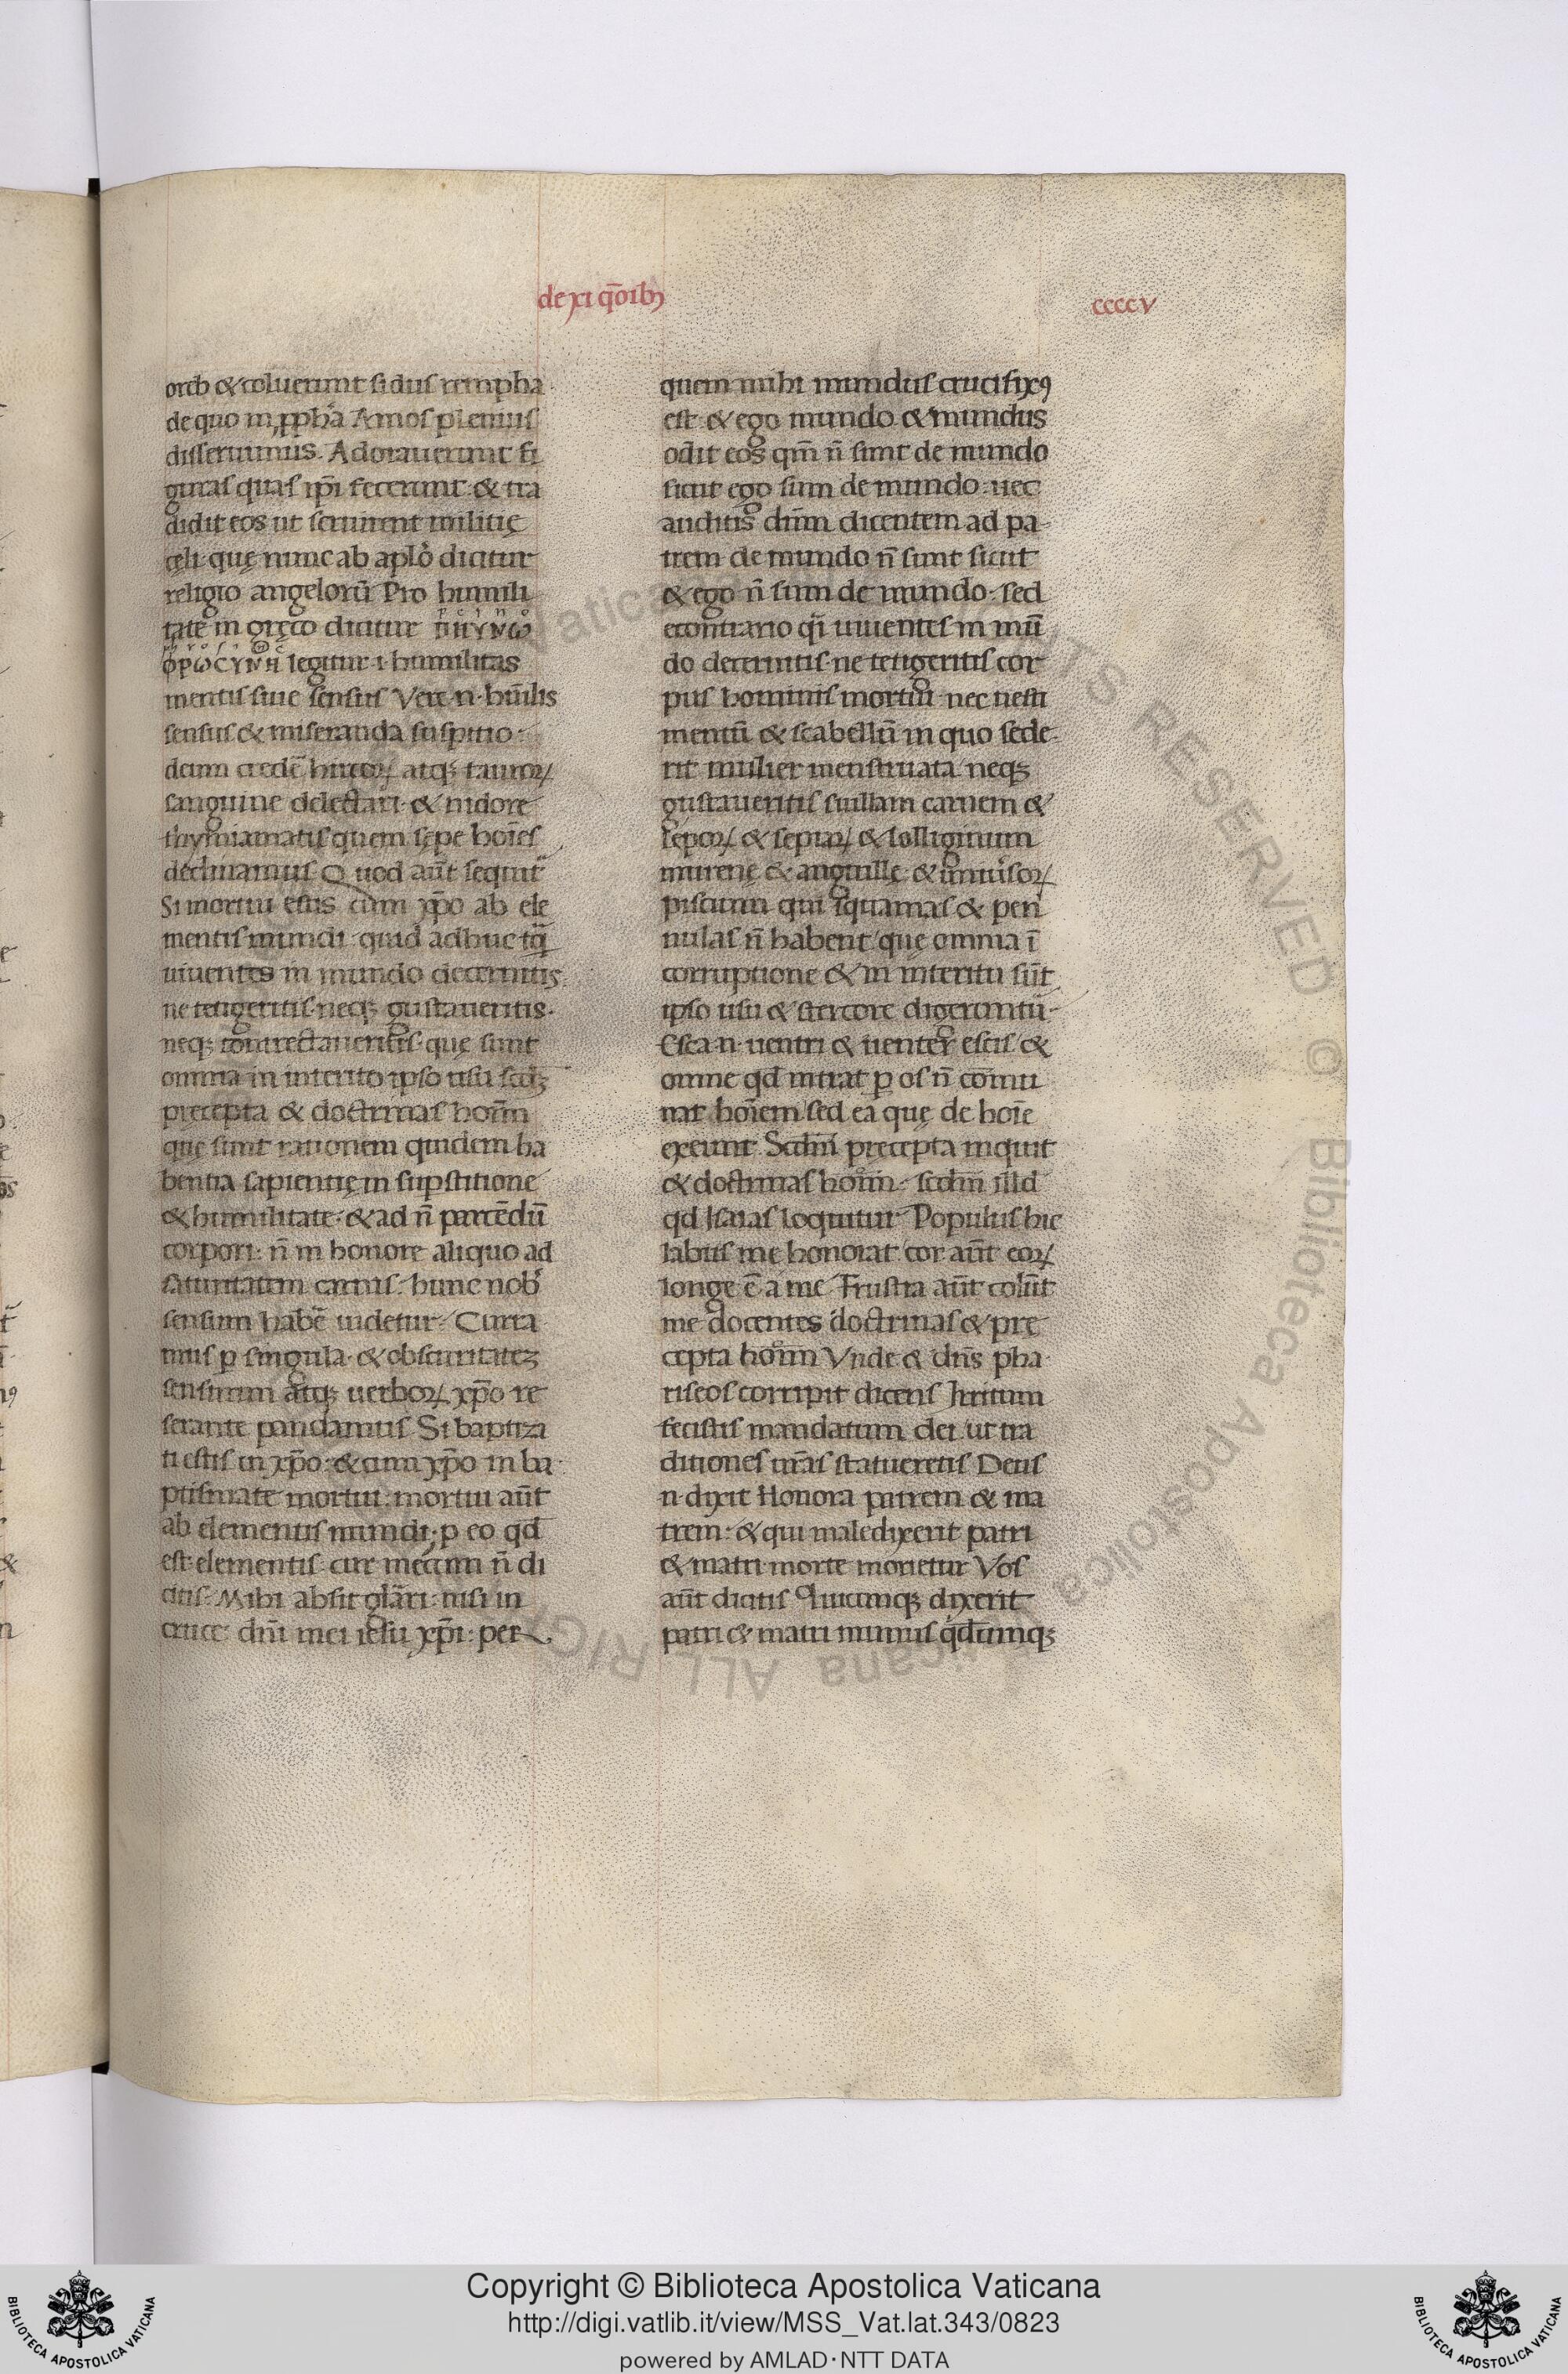 de xi q̄oib;
ccccv
orcb & coluerunt sidus rempha
de quo in ꝓpha Amos plenius
disseruimus. Adorauerunt fi
guras quas ip̄i fecerunt. & tra
didit eos ut seruirent militię
cęli. quę nunc ab aplo dicitur
religio angelorū Pro humili
tate in gręco dicitur
legitur .i. humilitas
mentis siue sensus Vere .n. hūilis
sensus & miseranda suspitio.
deum credē hircoꝝ atq; tauroꝝ
sanguine delectari. & nidore
thymiamatis quem sępe hoīes
declinamus Quod aūt sequit̄
Si mortui estis cum xp̄o ab ele
mentis mundi quid adhuc tq̄
uiuentes in mundo decernitis
ne tetigeritis. neq; gustaueritis.
neq; contrectaueritis. quę sunt
omnia in interito ipso usu scd̄z
pręcepta & doctrinas hoīm
quę sunt rationem quidem ha
bentia sapientię in suꝑstitione
& humilitate. & ad n̄ parcēdū
corpori: n̄ in honore aliquo ad
saturitatem carnis. hunc nob̄
sensum habē uidetur. Curra
mus ꝑ singula. & obscuritatez
sensuum atq; uerboꝝ xp̄o re
serante pandamus Si baptiza
ti estis in xp̄o. & cum xp̄o in ba
ptismate mortui. mortui aūt
ab elementis mundi; ꝑ eo qd̄
est: elementis. cur mecum n̄ di
citis. Mihi absit glāri: nisi in
cruce: dn̄i mei iesu xp̄i: per
quem mihi mundus crucifixꝰ
est. & ego mundo. & mundus
odit eos qm̄ n̄ sunt de mundo
sicut ego sum de mundo. nec
auditis dn̄m dicentem ad pa
trem de mundo n̄ sunt sicut
& ego n̄ sum de mundo. sed
econtrario q̄i uiuentes in mū
do decernitis. ne tetigeritis cor
pus hominis mortui nec uesti
mentū & scabellū in quo sede
rit mulier menstruata neq;
gustaueritis suillam carnem &
lepoꝝ & sepiaꝝ & lolliginum
murenę & anguillę & uniuſsoꝝ
piscium qui squamas & pen
nulas n̄ habent quę omnia ī
corruptione & in interitu sūt
ipso usu & stercore digeruntū
Esca .n. uentri & uenter escis &
omne qd̄ intrat ꝑ os n̄ comu
nat hoīem sed ea quę de hoīe
exeunt. Scdm̄ pręcepta inquit
& doctrinas hoīm. scdm̄ illd
qd̄ Isaias loquitur Populus hic
labiis me honorat cor aūt eoꝝ
longe ē a me Frustra aūt colūt
me docentes doctrinas & pre
cepta hoīm Vnde & dn̄s pha
riseos corripit dicens Irritum
fecistis mandatum dei ut tra
ditiones ur̄as statueretis Deus
.n. dixit Honora patrem & ma
trem. & qui maledixerit patri
& matri morte morietur Vos
aūt dicitis Quicumq; dixerit
patri & matri munus qd̄cumq;
Copyright © Biblioteca Apostolica Vaticana
http://digi.vatlib.it/view/MSS_Vat.lat.343/0823
powered by AMLAD·NTT DATA
BIBLIOTECA APOSTOLICA VATICANA
BIBLIOTECA APOSTOLICA VATICANA